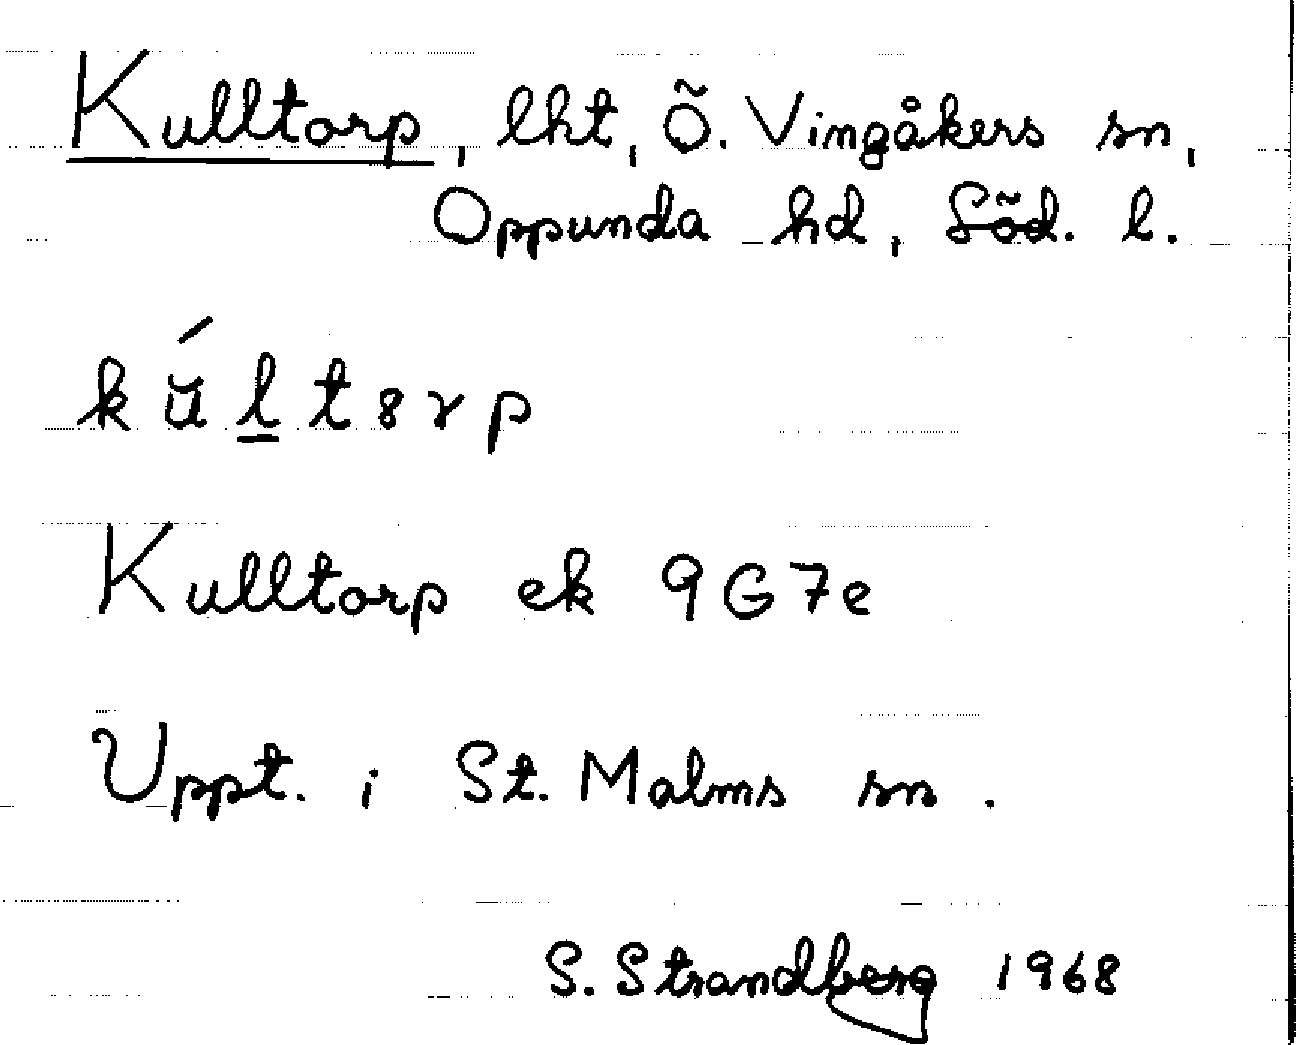 Kulltorp, lht, Ö. Vingåkers sn,
Oppunda hd, Söd. l.
kú̆l̲t8rp
Kulltorp ek 9G7e
Uppt. i St. Malms sn.
S. Strandberg 1968